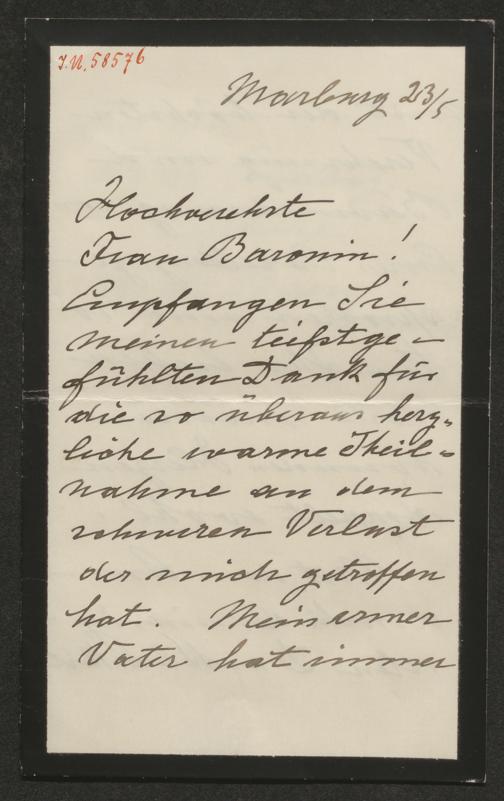 J.N. 58576
Marburg 23/5
Hochverehrte
Frau Baronin!
Empfangen Sie
meinen teifstge-
fühlten Dank für
die so überaus herz-
liche warme Theil-
nahme an dem
schweren Verlust
der mich getroffen
hat. Mein armer
Vater hat immer